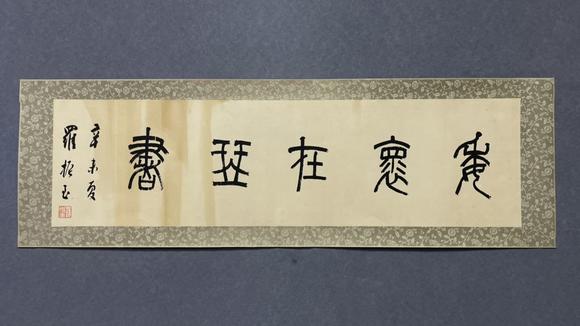 委懷在琴書
辛未夏
羅振玉